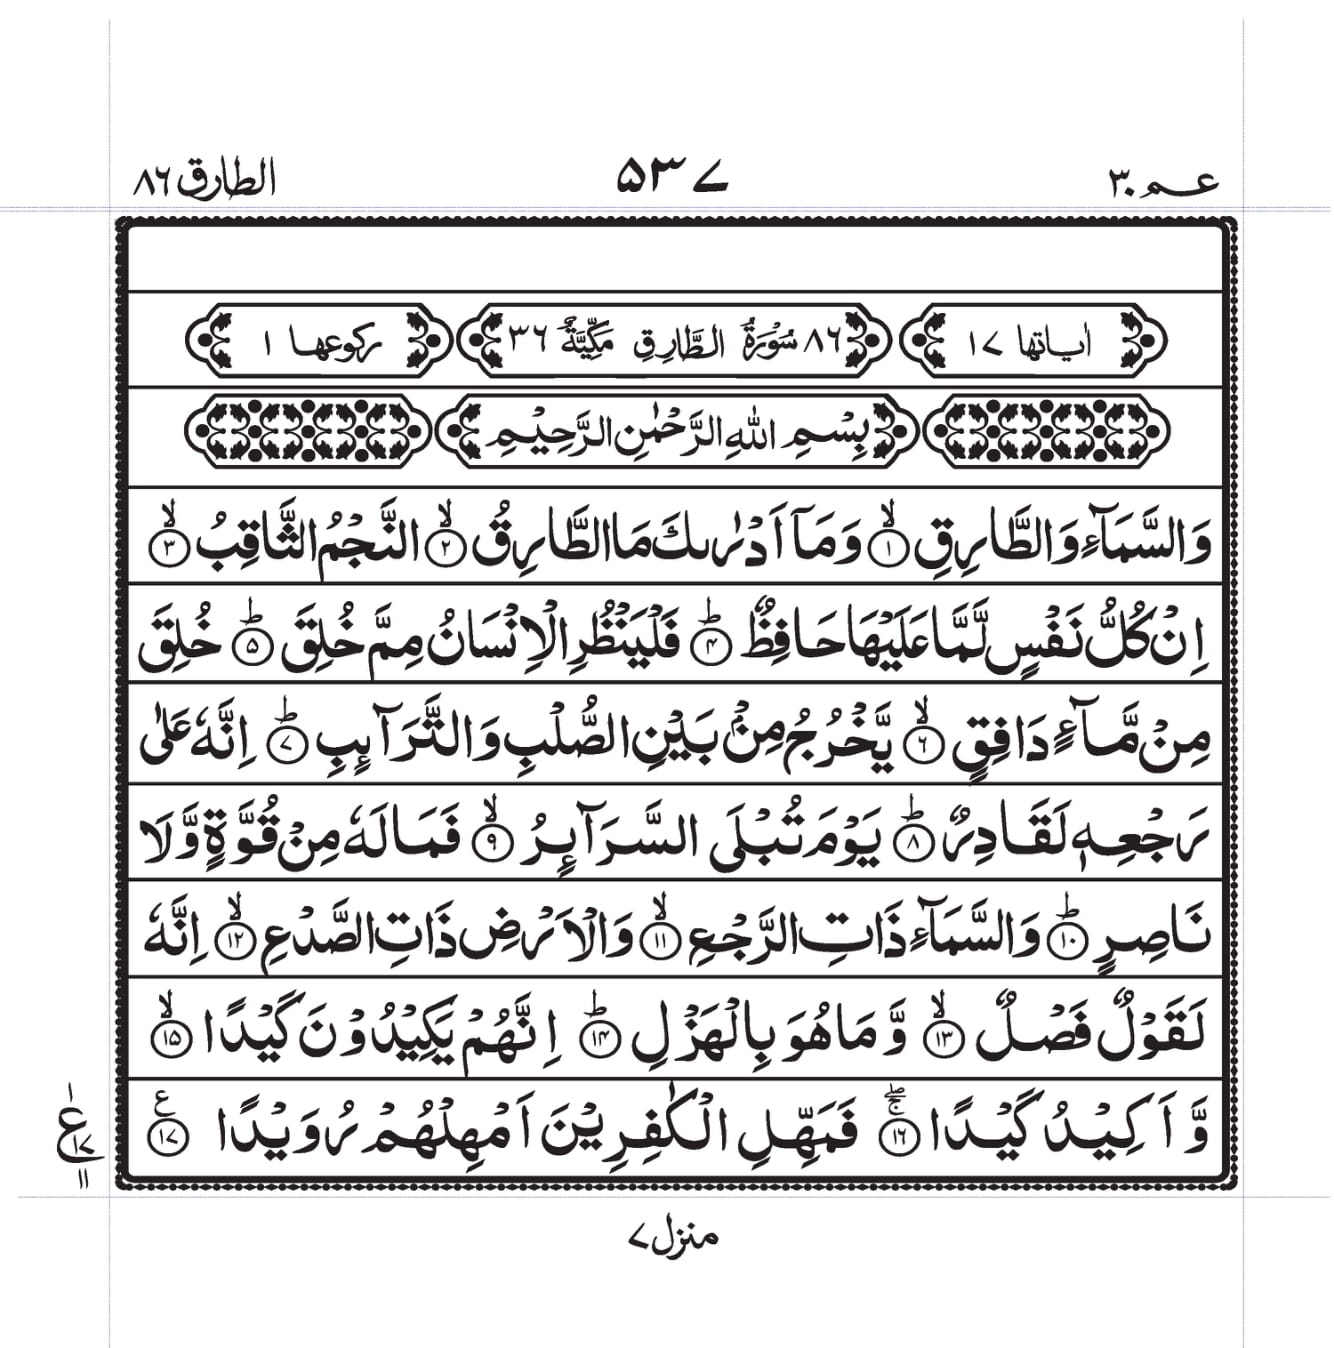 عـم ٣٠
۵۳۷
الطارق ٨٦
اٰیاتها ۱۷
٨٦ سُوۡرَةُ الطَّارِقِ مَكِّيَّةٌ ٣٦
ركوعها ۱
بِسۡمِ اللّٰهِ الرَّحۡمٰنِ الرَّحِيۡمِ
وَالسَّمَآءِ وَالطَّارِقِ ۙ‏﴿۱﴾ وَمَاۤ اَدۡرٰٮكَ مَا الطَّارِقُ ۙ‏﴿۲﴾ النَّجۡمُ الثَّاقِبُ ۙ‏﴿۳﴾
اِنۡ كُلُّ نَفۡسٍ لَّمَّا عَلَيۡهَا حَافِظٌ ؕ‏﴿۴﴾ فَلۡيَنۡظُرِ الۡاِنۡسَانُ مِمَّ خُلِقَ ؕ‏﴿۵﴾ خُلِقَ
مِنۡ مَّآءٍ دَافِقٍ ۙ‏﴿۶﴾ يَّخۡرُجُ مِنۡۢ بَيۡنِ الصُّلۡبِ وَالتَّرَآٮِٕبِ ؕ‏﴿۷﴾ اِنَّهٗ عَلٰى
رَجۡعِهٖ لَقَادِرٌ ؕ‏﴿۸﴾ يَوۡمَ تُبۡلَى السَّرَآٮِٕرُ ۙ‏﴿۹﴾ فَمَا لَهٗ مِنۡ قُوَّةٍ وَّلَا
نَاصِرٍ ؕ‏﴿۱۰﴾ وَالسَّمَآءِ ذَاتِ الرَّجۡعِ ۙ‏﴿۱۱﴾ وَالۡاَرۡضِ ذَاتِ الصَّدۡعِ ۙ‏﴿۱۲﴾ اِنَّهٗ
لَقَوۡلٌ فَصۡلٌ ۙ‏﴿۱۳﴾ وَّمَا هُوَ بِالۡهَزۡلِ ؕ‏﴿۱۴﴾ اِنَّهُمۡ يَكِيۡدُوۡنَ كَيۡدًا ۙ‏﴿۱۵﴾
وَّاَكِيۡدُ كَيۡدًا ۚۖ‏﴿۱۶﴾ فَمَهِّلِ الۡكٰفِرِيۡنَ اَمۡهِلۡهُمۡ رُوَيۡدًا ﴿۱۷﴾ ع
١
ع
١٧
١١
منزل ۷